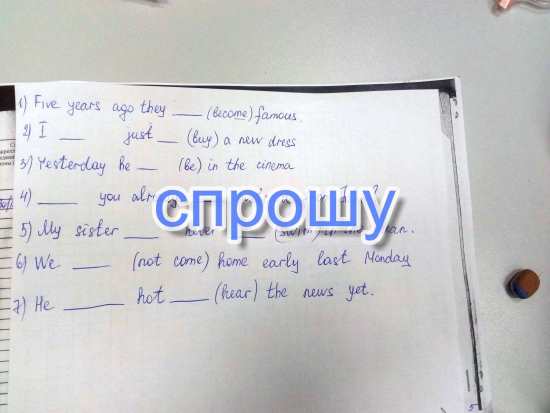 1) Five years ago they ___ (become) famous.
2) I ___ just ___ (buy) a new dress
3) Yesterday he ___ (be) in the cinema
4) ____ you ?
спрошу
5) My sister ___ never (swim) in the
6) We ____ (not come) home early last Monday
7) He ____ not ____ (hear) the news yet.
5